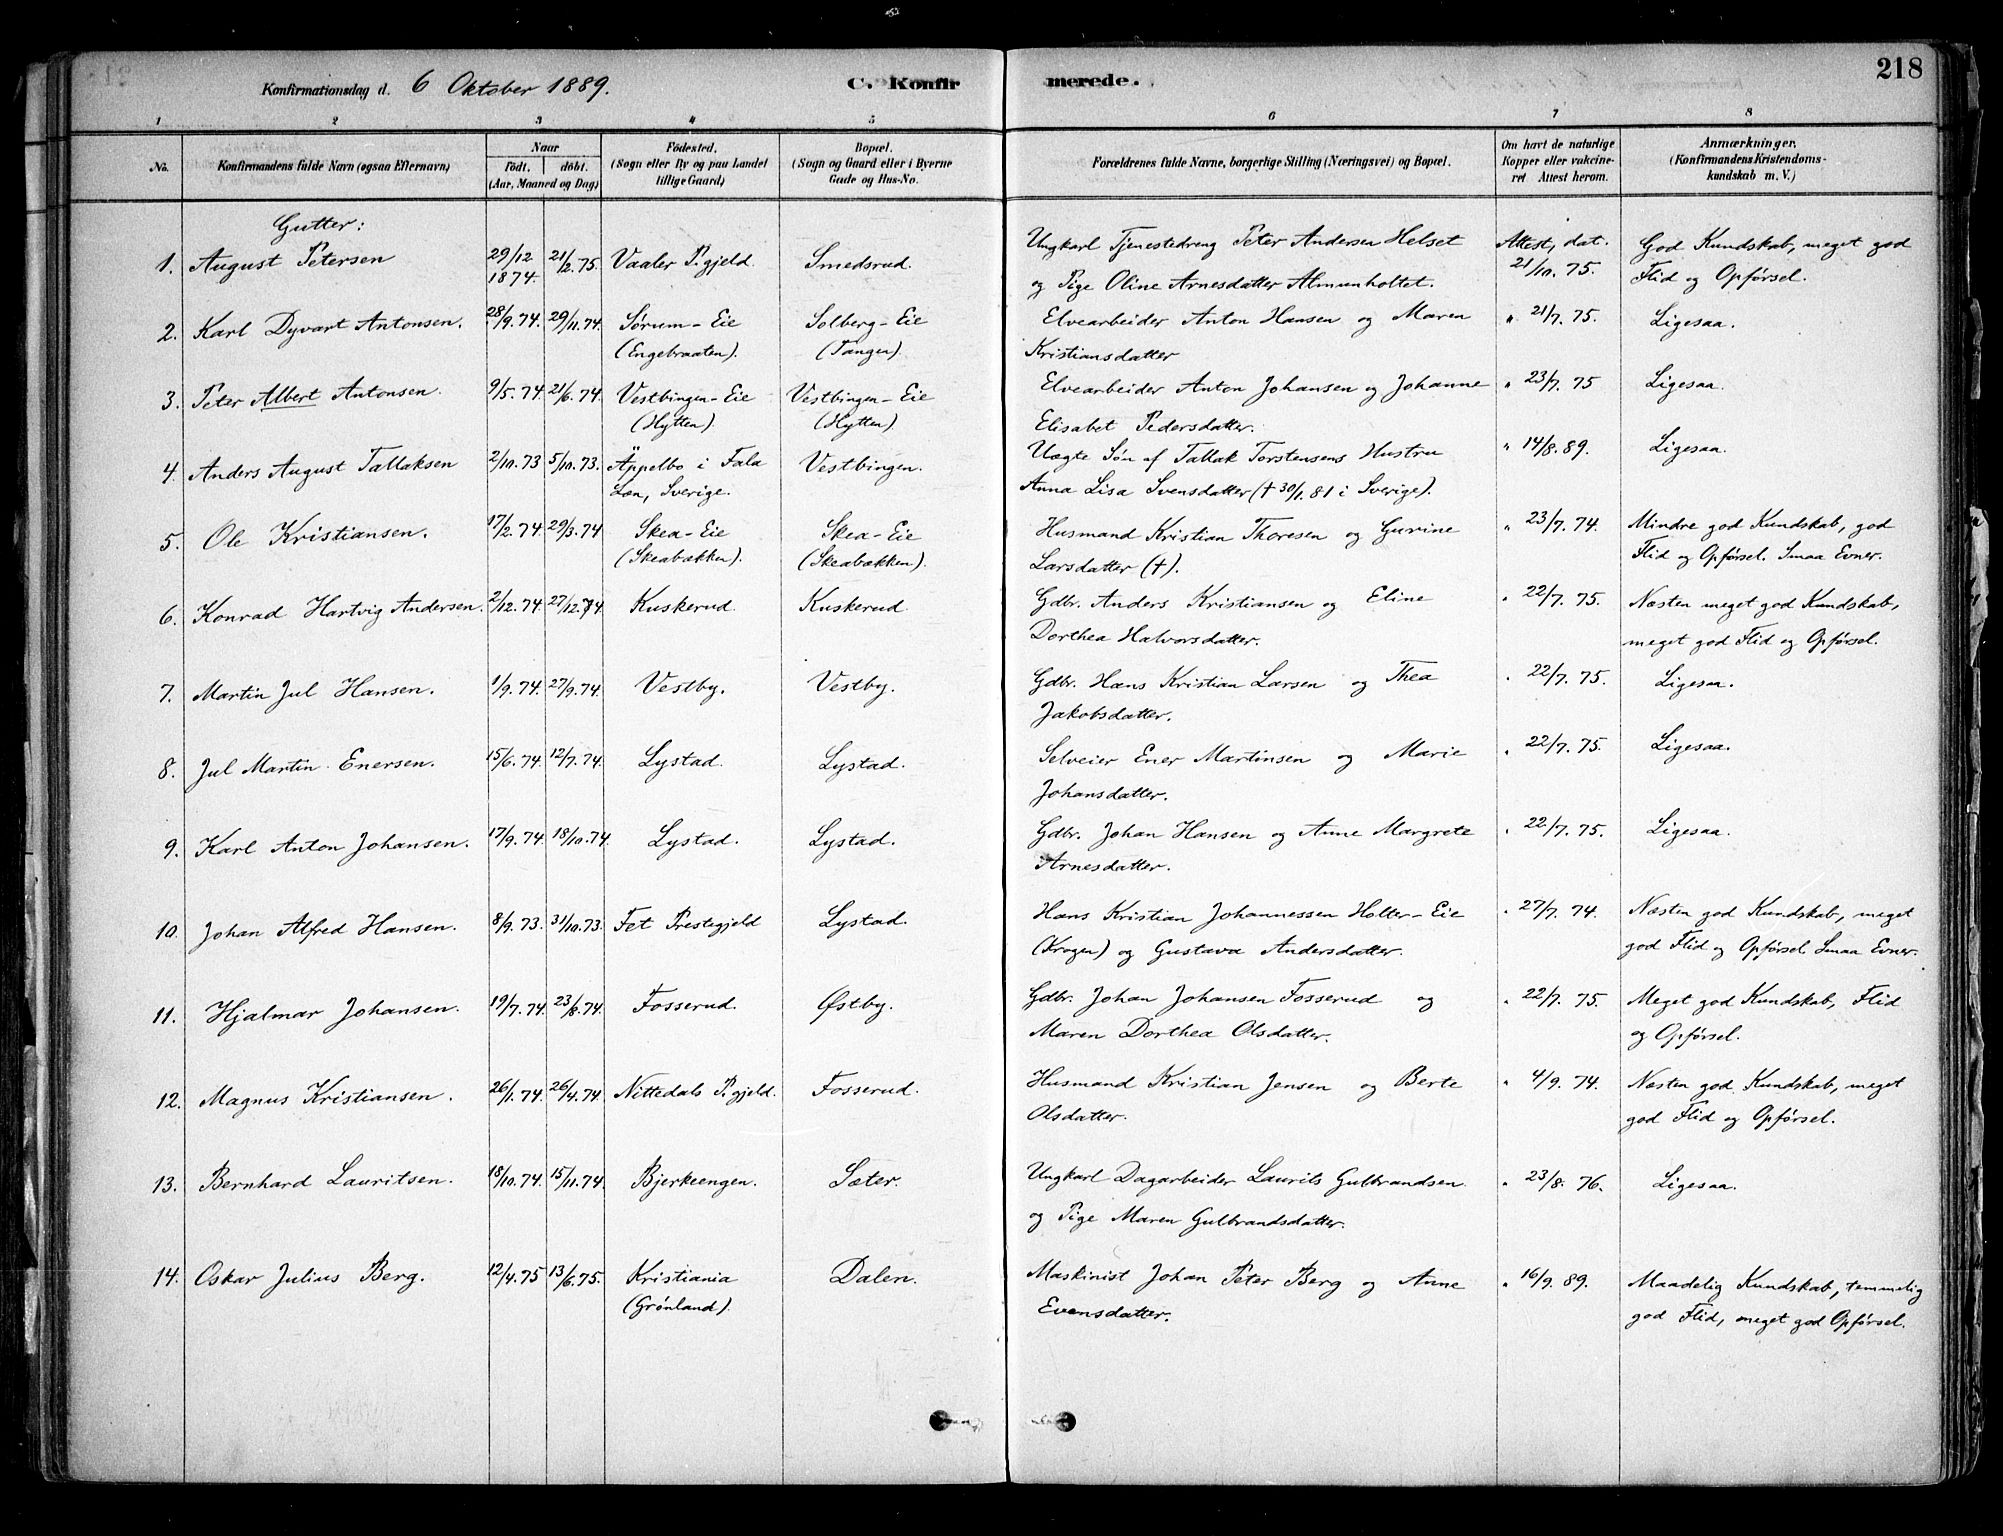 218
Konfirmationsdag d. 6 Oktober 1889. C. Konfirmerede.
1 2 3 4 5 6 7 8
No. Konfirmandens fulde Navn (ogsaa Efternavn) Naar Födt. döbt. (Aar, Maaned og Dag) Födested. (Sogn eller By og paa Landet tillige Gaard) Bopæl. (Sogn og Gaard eller i Byerne Gade og Hus-No. Forældrenes fulde Navne, borgerlige Stilling (Næringsvei) og Bopæl. Om havt de naturlige Kopper eller vakcineret Attest herom. Anmærkninger. (Konfirmandens Kristendomskundskab m. V.)
Gutter:
1. August Petersen 29/12 1874. 21/2.75. Vaaler P.gjeld. Smedsrud. Ungkarl Tjenestedreng Peter Andersen Helset Attest, dat. God Kundskab, meget god
og Pige Oline Arnesdatter Almunholtet. 21/10. 75. Flid og Opførsel.
2. Karl Dyvart Antonsen. 28/9.74. 29/11.74. Sørum-Eie Solberg-Eie Elvearbeider Anton Hansen og Maren " 21/7. 75. Ligesaa.
(Engebraaten). (Tangen). Kristiansdatter
3. Peter Albert Antonsen. 9/5.74. 21/6.74. Vestbingen-Eie Vestbingen-Eie Elvearbeider Anton Johansen og Johanne " 23/7. 75 Ligesaa.
(Hytten). (Hytten). Elisabet Pedersdatter.
4. Anders August Tallaksen 2/10.73 5/10.73. Äppelbo i Fala Vestbingen. Uægte Søn af Tallak Torstensens Hustru " 14/8. 89. Ligesaa.
Læn, Sverige. Anna Lisa Svensdatter († 30/1. 81 i Sverige).
5. Ole Kristiansen. 17/2.74. 29/3.74 Skea-Eie Skea-Eie Husmand Kristian Thoresen og Gurine " 23/7. 74. Mindre god Kundskab, god
(Skeabækken). (Skeabækken). Larsdatter (†). Flid og Opførsel. Smaa Evner.
6. Konrad Hartvig Andersen. 2/12.74. 27/12.74. Kuskerud. Kuskerud. Gdbr. Anders Kristiansen og Eline " 22/7. 75. Næsten meget god Kundskab,
Dorthea Halvorsdatter. meget god Flid og Opførsel.
7. Martin Jul Hansen. 1/9.74. 27/9.74. Vestby. Vestby. Gdbr. Hans Kristian Larsen og Thea " 22/7. 75. Ligesaa.
Jakobsdatter.
8. Jul Martin Enersen. 15/6.74. 12/7.74. Lystad. Lystad. Selveier Ener Martinsen og Marie " 22/7. 75. Ligesaa.
Johansdatter.
9. Karl Anton Johansen. 17/9.74. 18/10.74. Lystad. Lystad. Gdbr. Johan Hansen og Anne Margrete " 22/7. 75. Ligesaa.
Arnesdatter.
10. Johan Alfred Hansen. 8/9.73. 31/10.73. Fet Prestegjeld Lystad. Hans Kristian Johannessen Holter-Eie " 27/7. 74. Næsten god Kundskab, meget
(Krogen) og Gustava Andersdatter. god Flid og Opførsel. Smaa Evner.
11. Hjalmar Johansen. 19/7.74. 23/8.74. Fosserud. Østby. Gdbr. Johan Johansen Fosserud og " 22/7. 75. Meget god Kundskab, Flid
Maren Dorthea Olsdatter. og Opførsel.
12. Magnus Kristiansen. 26/1.74. 26/4.74. Nittedals P.gjeld. Fosserud. Husmand Kristian Jensen og Berte " 4/9. 74. Næsten god Kundskab, meget
Olsdatter. god Flid og Opførsel.
13. Bernhard Lauritsen. 18/10.74. 15/11.74. Bjerkeengen. Sæter. Ungkarl Dagarbeider Laurits Gulbrandsen " 23/8. 76. Ligesaa.
og Pige Maren Gulbrandsdatter.
14. Oskar Julius Berg. 12/4.75 13/6.75. Kristiania Dalen. Maskinist Johan Peter Berg og Anne " 16/9. 89. Maadelig Kundskab, temmelig
(Grønland). Evensdatter. god Flid, meget god Opførsel.